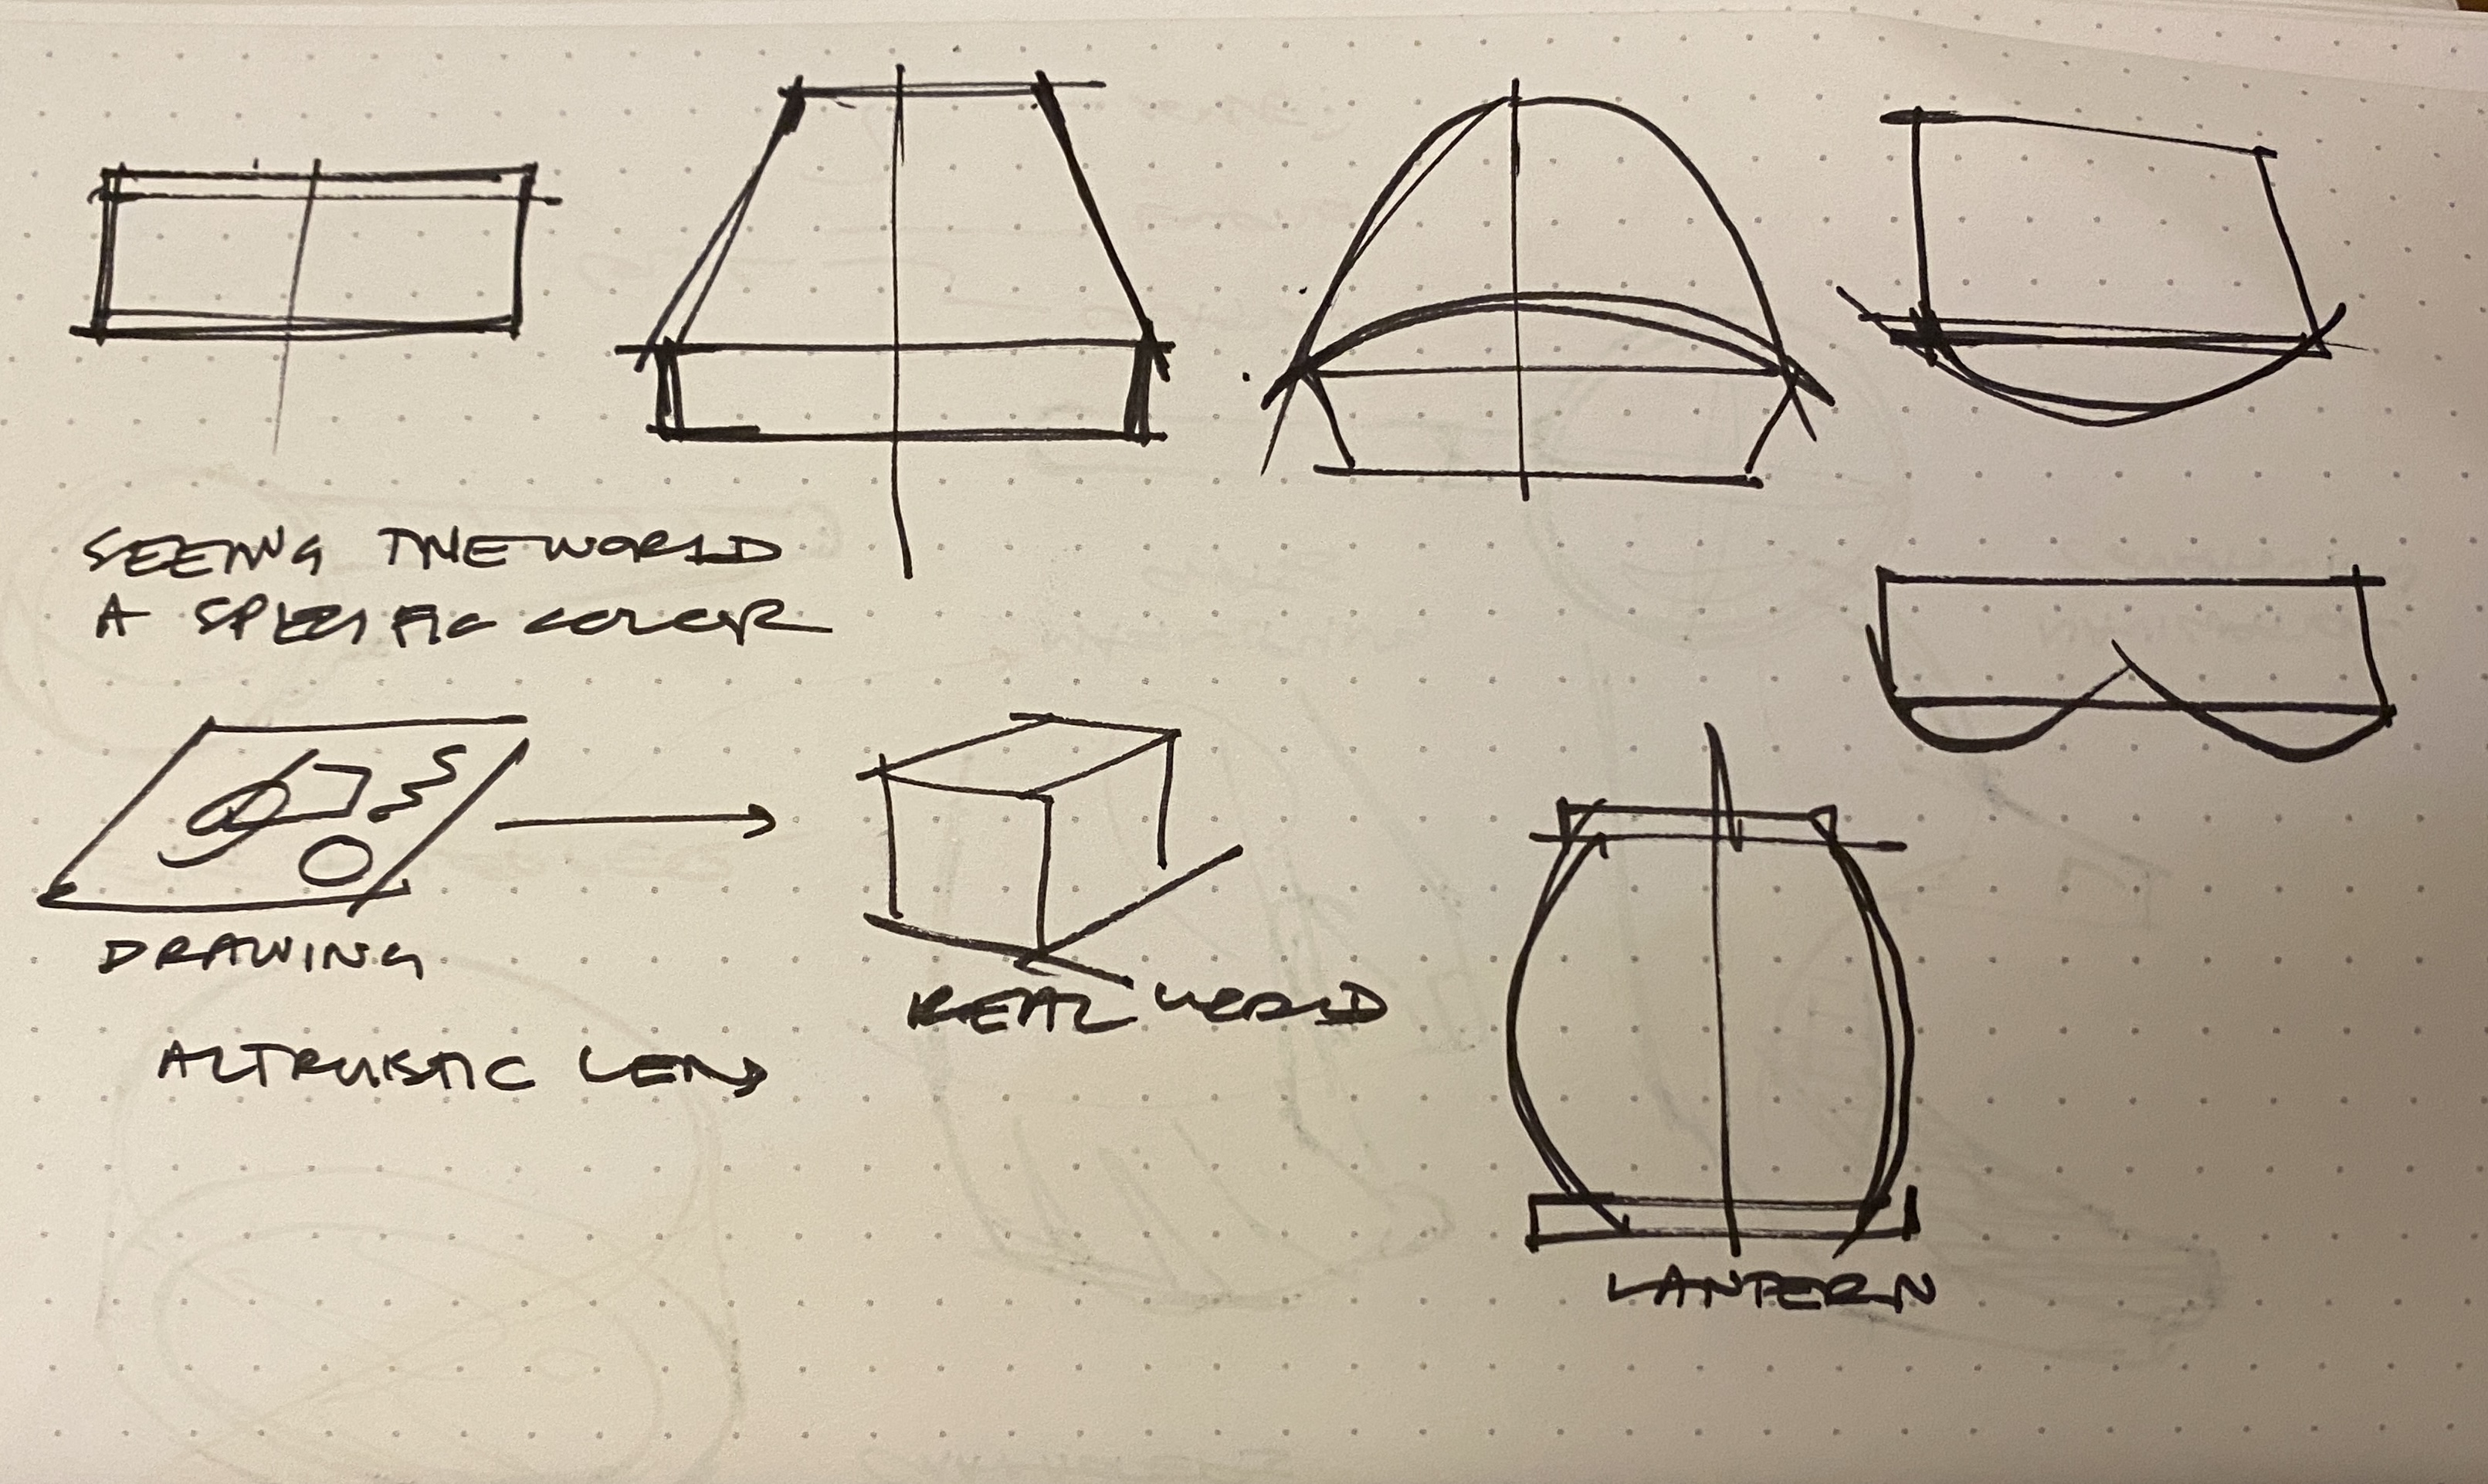 SEEING THE WORLD
A SPECIFIC COLOR
DRAWING
REAL WORLD
ALTRUISTIC LENS
LANTERN